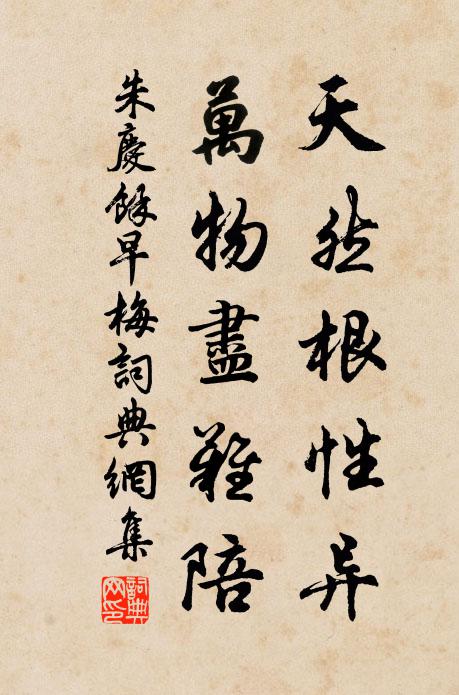 天然根性异
萬物盡難陪
朱慶餘早梅詞典網集
詞典網印